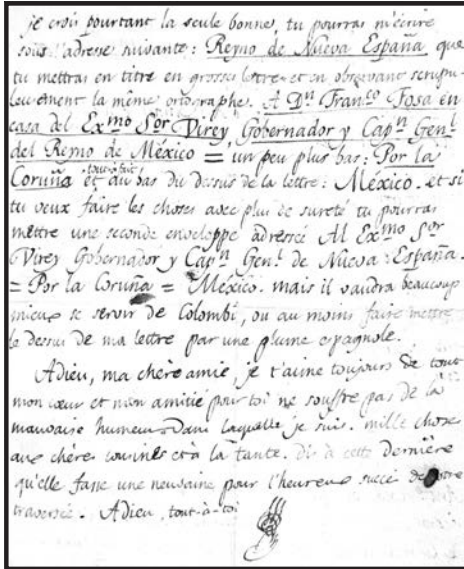 je crois pourtant la seule bonne, tu pourras m'écrire
sous l'adresse suivante: Reyno de Nueva España que
tu mettras en titre en grosses lettre et en observant scrupu-
leusement la même ortographe. A Dn Franco Fosa en
casa del Exmo Sor Virey, Gobernador y Capn Genl
del Reyno de México = un peu plus bas: Por la
Coruña et tout à fait au bas du dessus de la lettre: México. et si
tu veux faire les choses avec plus de sureté tu pourras
mettre une seconde enveloppe adressée Al Exmo Sor
Virey Gobernador y Capn Genl de Nueva España.
= Por la Coruña = México. mais il vaudra beaucoup
mieux se servir de Colombi, ou au moins faire mettre
le dessus de ma lettre par une plume espagnole.
Adieu, ma chère amie, je t'aime toujours de tout
mon cœur et mon amitié pour toi ne souffre pas de la
mauvaise humeur dans laquelle je suis. mille chose
aux chère cousines et à la tante. dis à cette dernière
qu'elle fasse une neuvaine pour l'heureux succé de notre
traversée. Adieu, tout-à-toi